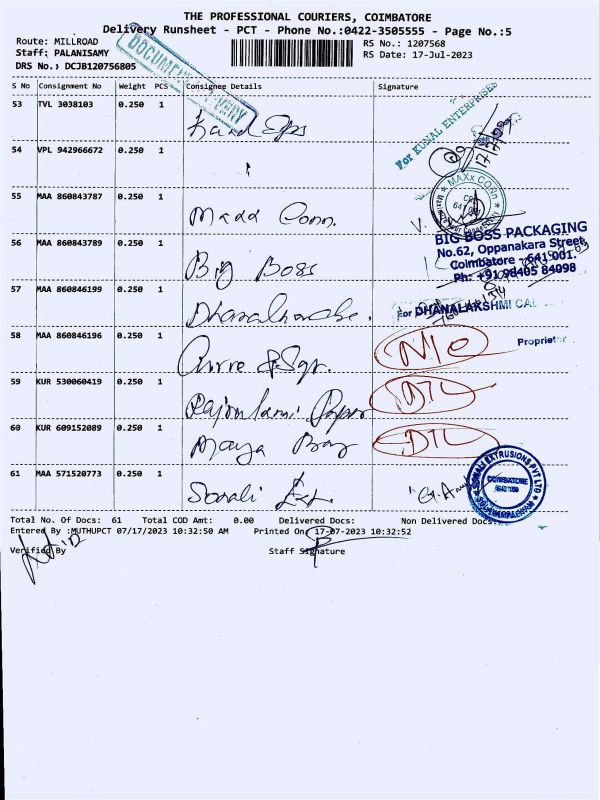 THE PROFESSIONAL COURIERS, COIMBATORE
Delivery Runsheet - PCT - Phone No.:0422-3505555 - Page No.:5
Route: MILLROAD RS No.: 1207568
Staff: PALANISAMY RS Date: 17-Jul-2023
DRS No.: DCJB120756805
S No Consignment No Weight PCS Consignee Details Signature
53 TVL 3038103 0.250 1
For KUNAL ENTERPRISES
54 VPL 942966672 0.250 1
55 MAA 860843787 0.250 1 Maxx Conn.
MAXX CONN
56 MAA 860843789 0.250 1 Big Boss
BIG BOSS PACKAGING
No.62, Oppanakara Street,
Coimbatore - 641 001.
Ph: +91 98405 84098
57 MAA 860846199 0.250 1
For DHANALAKSHMI
Proprietor
58 MAA 860846196 0.250 1
N/C
59 KUR 530060419 0.250 1 Paper
DTL
60 KUR 609152089 0.250 1 Maya
DTL
61 MAA 571520773 0.250 1 Sonali Ext.
SONALI EXTRUSIONS PVT LTD
COIMBATORE
Total No. Of Docs: 61 Total COD Amt: 0.00 Delivered Docs: Non Delivered Docs:
Entered By :MUTHUPCT 07/17/2023 10:32:50 AM Printed On 17-07-2023 10:32:52
Verified By Staff Signature